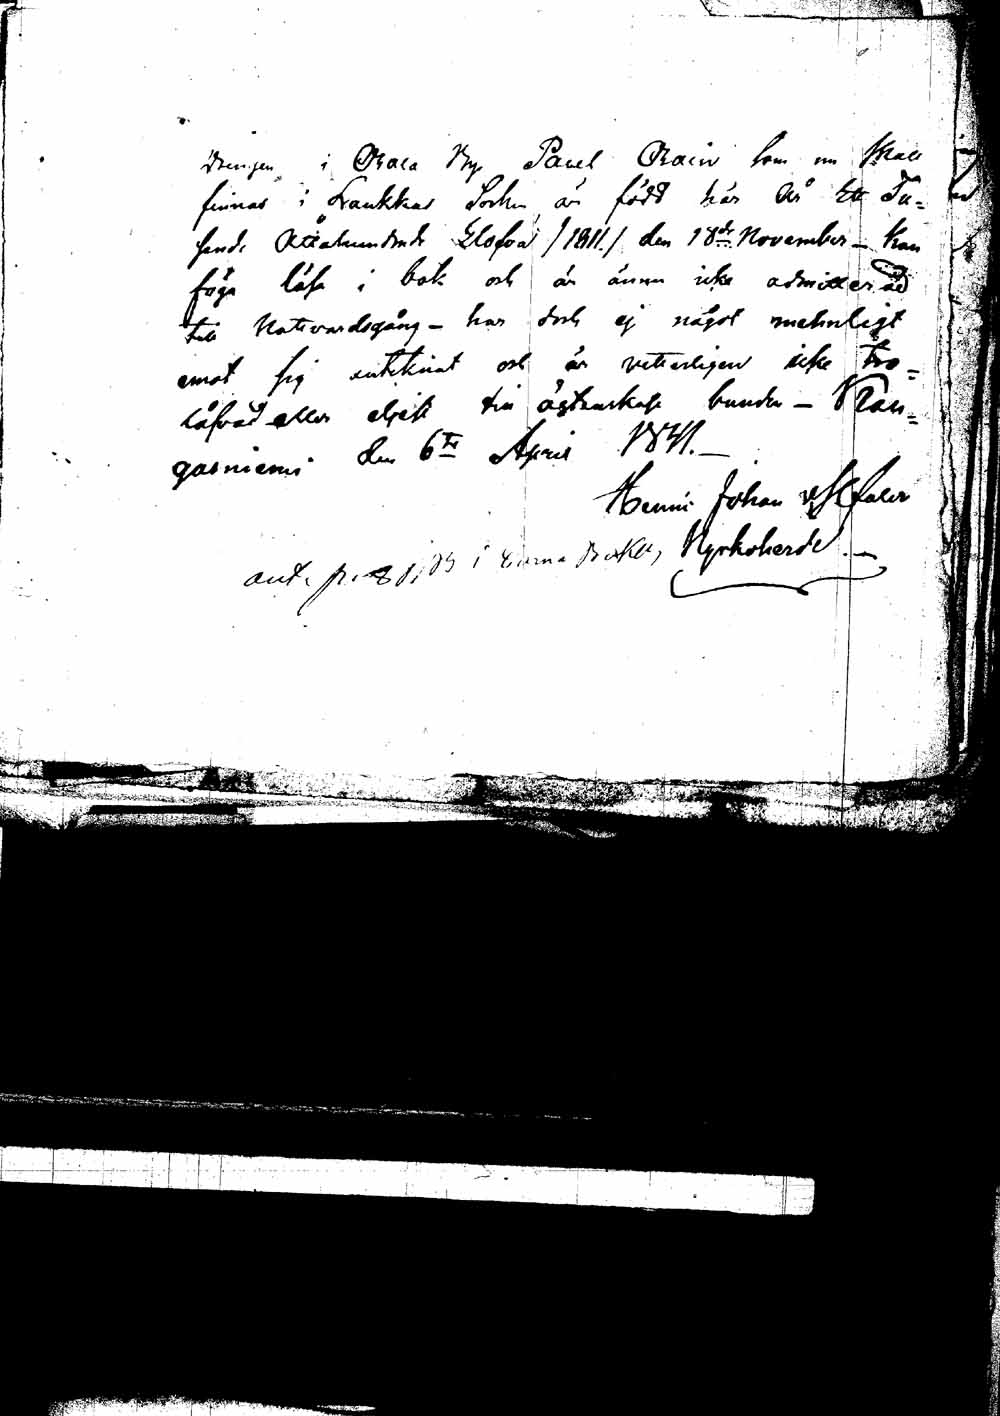 Drengen i Orala By Pavel Orain som nu skall
finnas i Laukkas Sockn, är född här År Ett Tu=
sende Åttahundrade Elofva /1811./ den 18de November – kan
föga läsa i bok och är ännu icke admitterad
till Nattvardsgång – har dock ej något mehnligt
emot sig anteknat och är vetterligen icke tro=
låfvad eller eljest till ägtenskap bunden – Kan=
gasniemi den 6te April 1841. –
Henric Johan
Kyrkoherde. –
ant. i